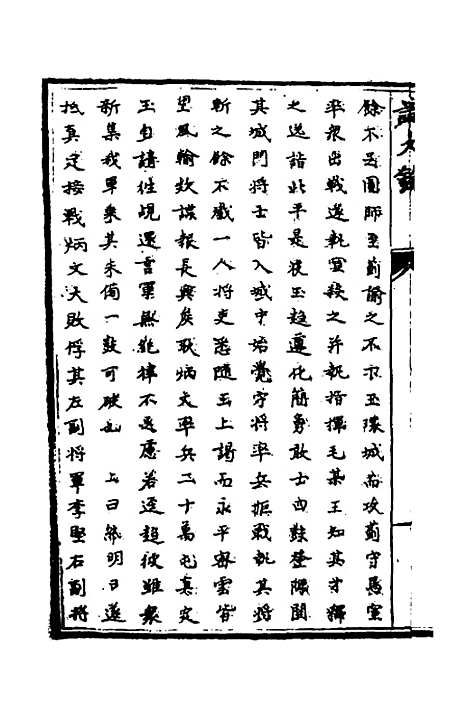 餘不足圖師至薊諭之不下玉環城而攻薊守馬宣
率衆出戰遂執宣殺之并執指揮毛某王知其才釋
之送詣北平是夜玉趨遵化簡勇敢士四鼓登陴開
其城門將士皆入城中始覺守將率兵拒戰執其將
斬之餘不戮一人將吏悉隨玉上謁而永平密雲皆
望風輸欵諜報長興矦耿炳文率兵三十萬屯真定
玉自請徃覘還言軍無紀律不足慮若逕趨彼雖衆
新集我軍乘其未備一鼓可破也　上曰然明日遂
抵真定接戰炳文大敗俘其左副將軍李堅右副將